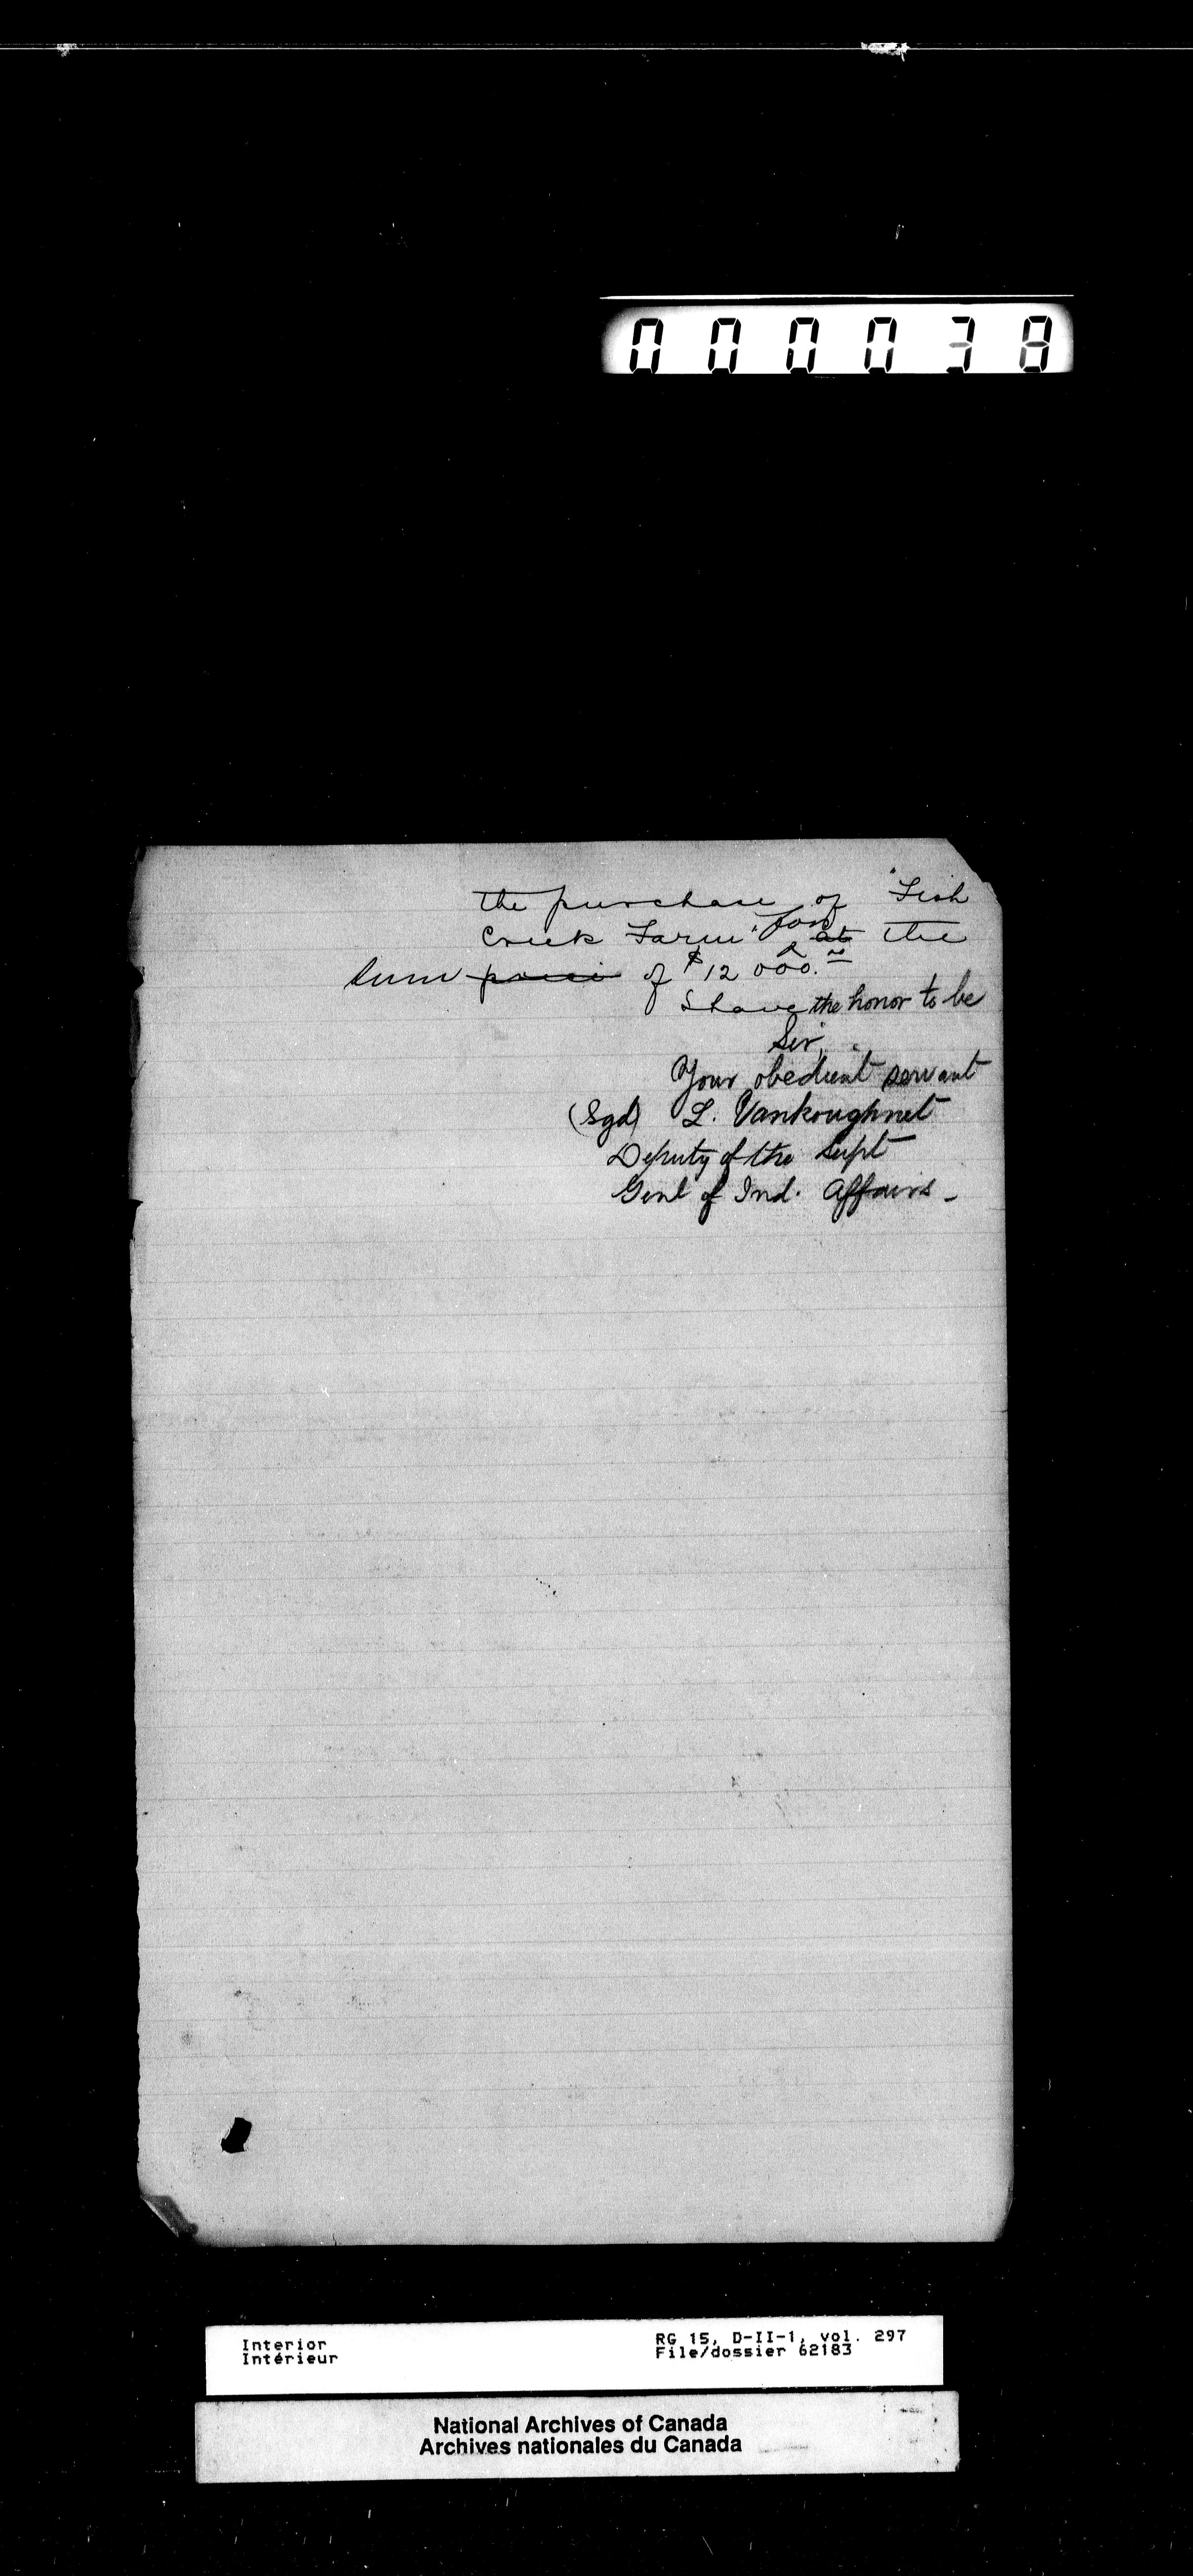 000038
the purchase of "Fish
Creek Farm" for at the
sum price of $12 000.
I have the honor to be
Sir,
Your obedient servant
(Sgd) L. Vankoughnet
Deputy of the Supt
Genl of Ind. Affairs -
Interior
Intérieur
RG 15, D-II-1, vol. 297
File/dossier 62183
National Archives of Canada
Archives nationales du Canada